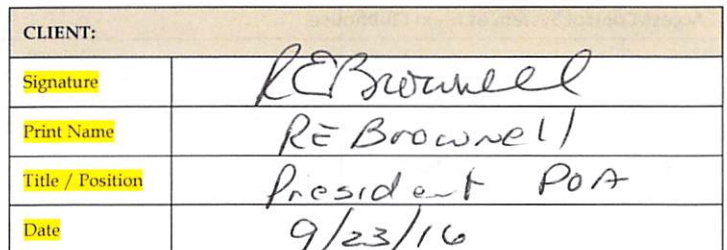 CLIENT:
Signature REBrownell
Print Name RE Brownell
Title / Position President POA
Date 9/23/16